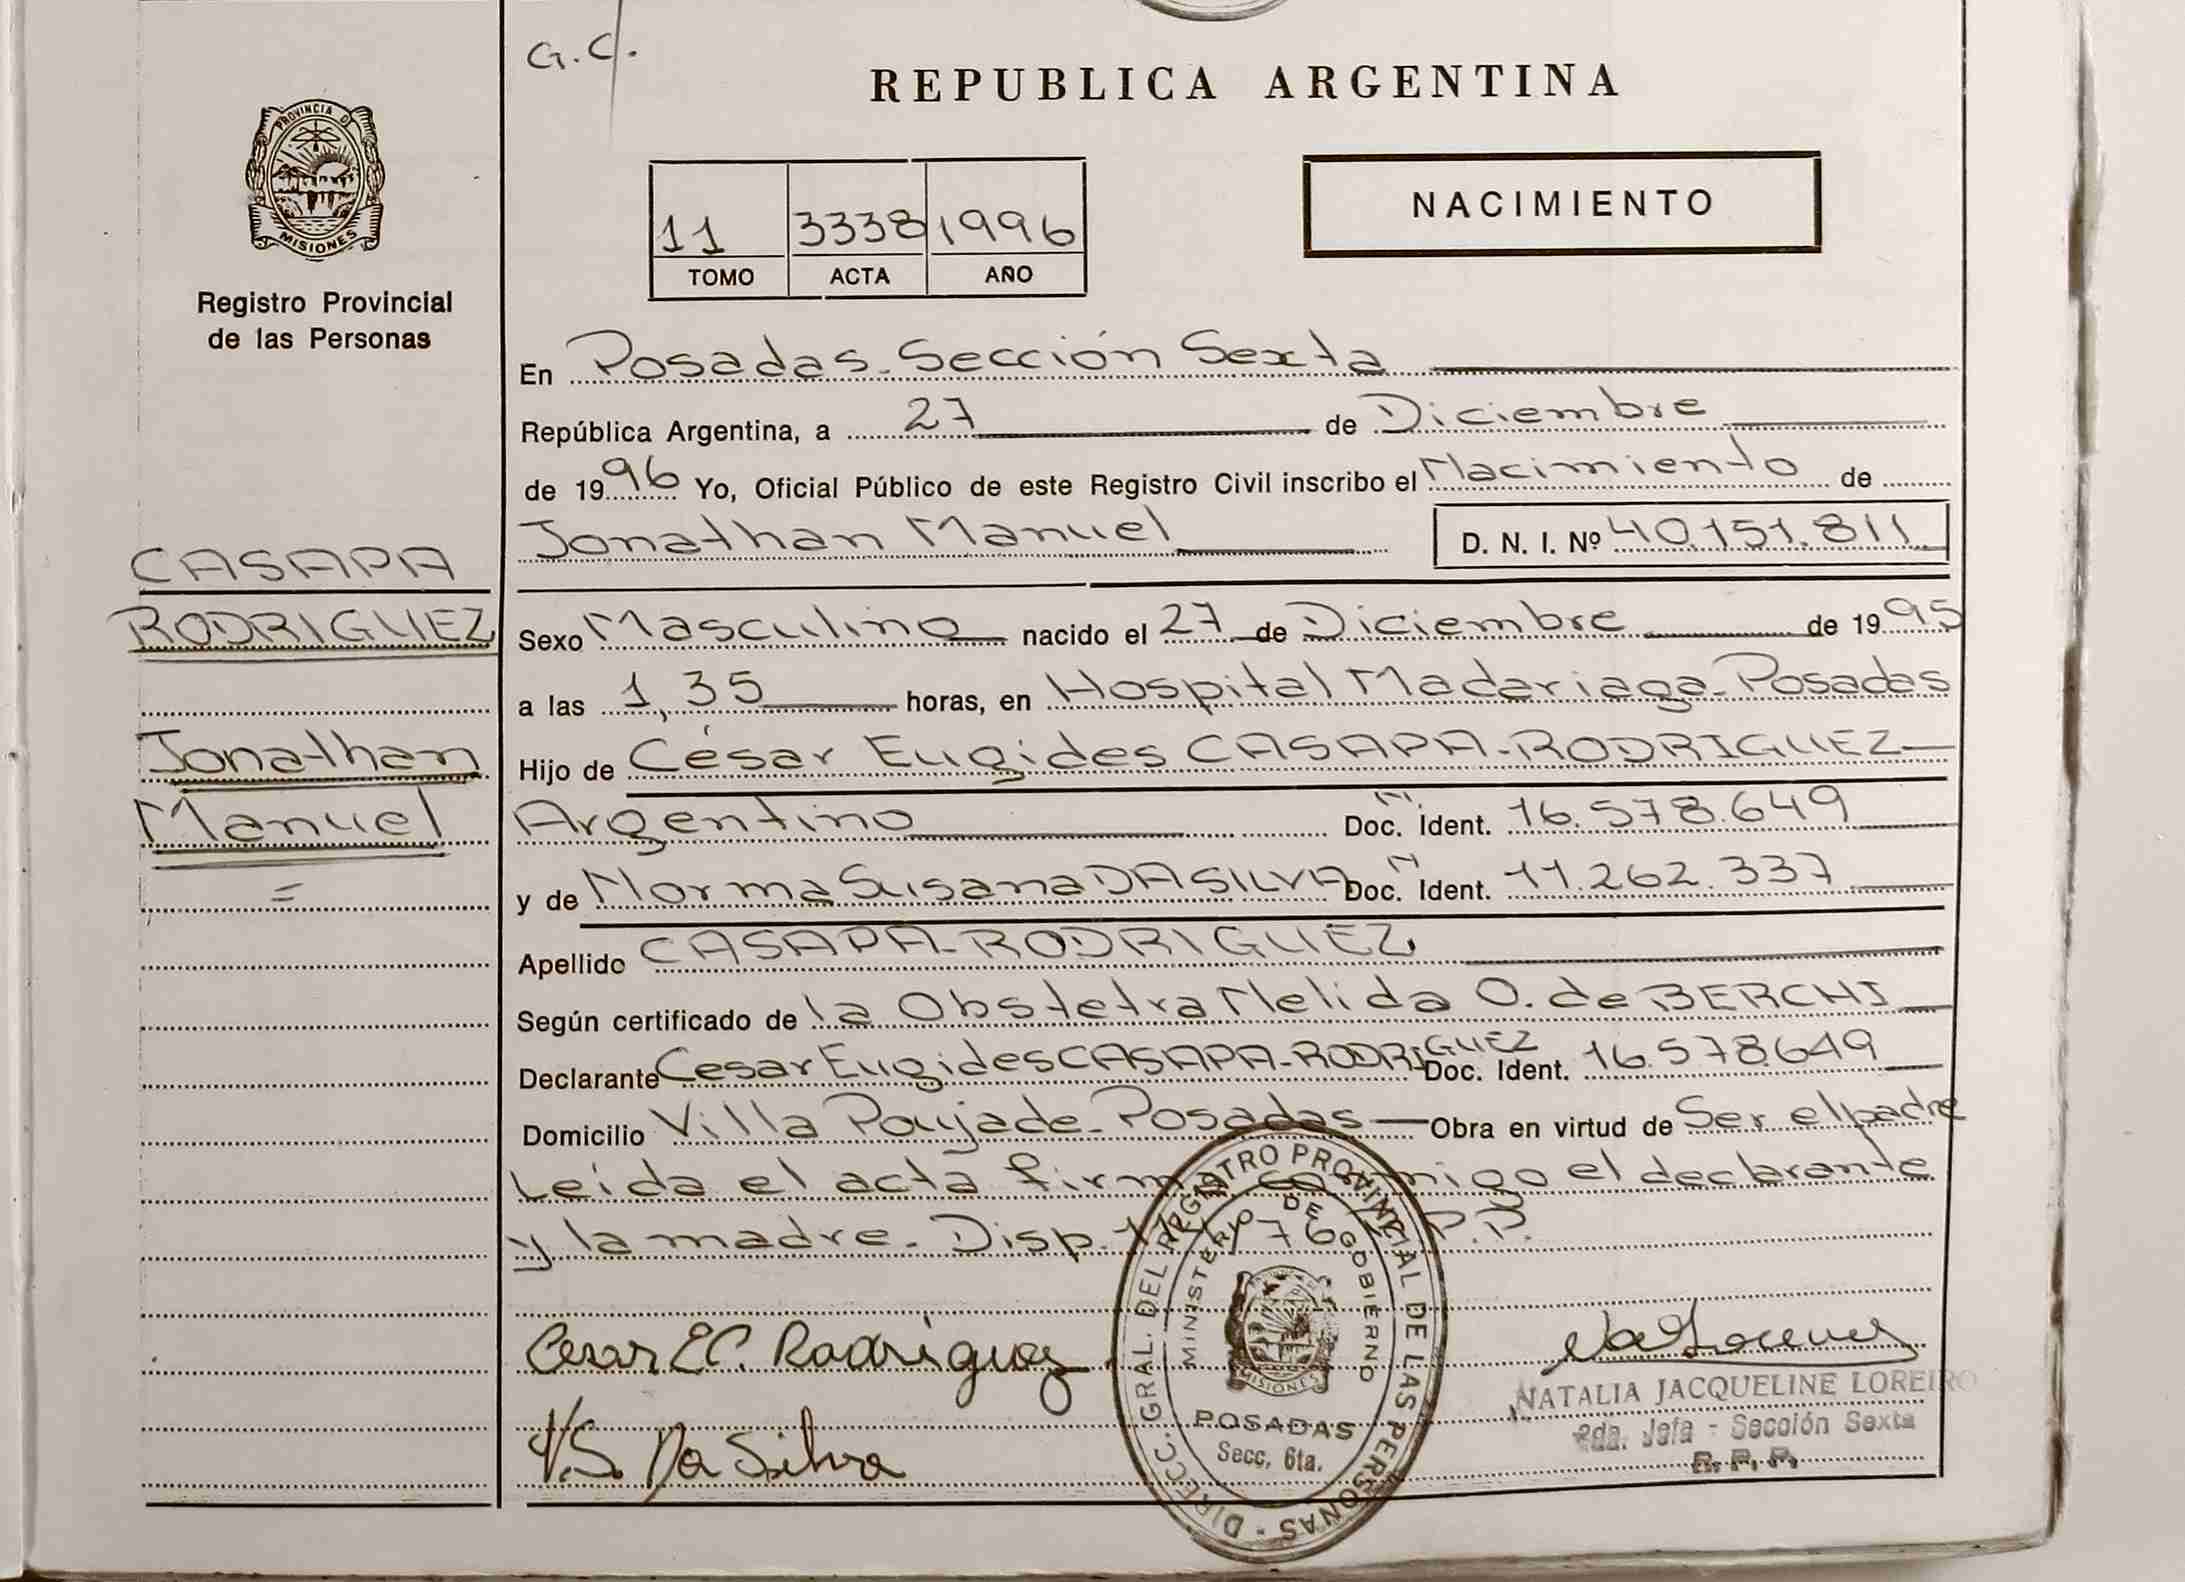 G.C.
REPUBLICA ARGENTINA
PROVINCIA D
MISIONES
Registro Provincial
de las Personas
11 3338 1996
TOMO ACTA AÑO
NACIMIENTO
En Posadas - Sección Sexta
República Argentina, a 27 de Diciembre
de 1996 Yo, Oficial Público de este Registro Civil inscribo el Nacimiento de
Jonathan Manuel D. N. I. Nº 40.151.811
CASAPA
RODRIGUEZ
Jonathan
Manuel
=
Sexo Masculino nacido el 27 de Diciembre de 1995
a las 1,35 horas, en Hospital Madariaga - Posadas
Hijo de César Eugides CASAPA-RODRIGUEZ
Argentino Doc. N Ident. 16.578.649
y de Norma Susana DA SILVA Doc. N Ident. 11.262.337
Apellido CASAPA-RODRIGUEZ
Según certificado de la Obstetra Nelida O. de BERCHI
Declarante Cesar Eugides CASAPA-RODRIGUEZ Doc. Ident. 16.578.649
Domicilio Villa Poujade - Posadas Obra en virtud de Ser el padre
Leída el acta firma conmigo el declarante
y la madre. Disp. 176 P.P.
Cesar E C. Rodriguez
N.S. Da Silva
DIRECC. GRAL. DEL REGISTRO PROVINCIAL DE LAS PERSONAS
MINISTERIO DE GOBIERNO
MISIONES
POSADAS
Secc. 6ta.
NATALIA JACQUELINE LOREIRO
2da. Jefa - Sección Sexta
R. P. P.